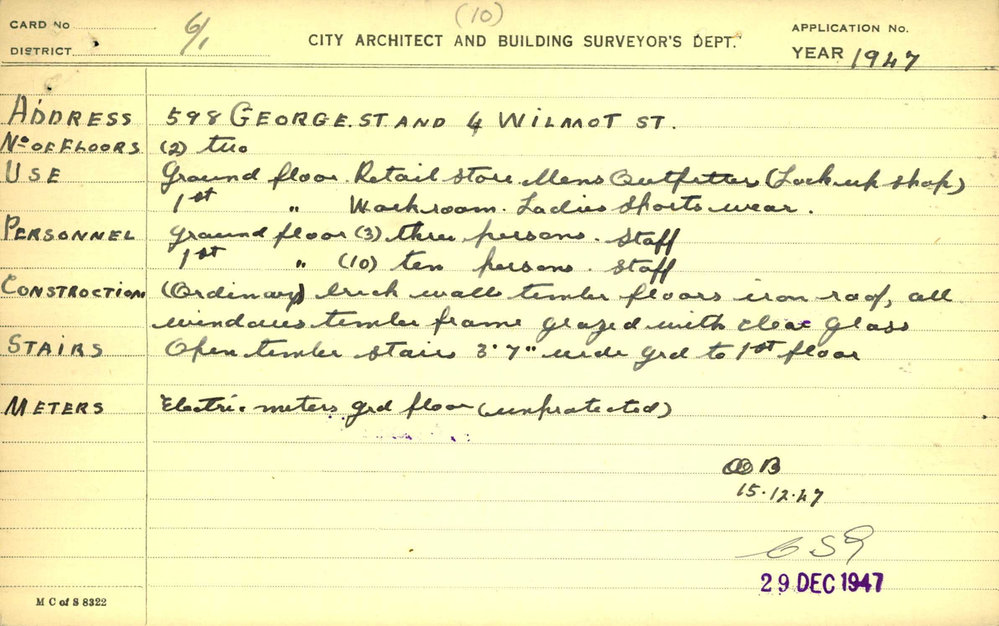 (10)
CARD No 6/1
CITY ARCHITECT AND BUILDING SURVEYOR'S DEPT.
APPLICATION No.
DISTRICT
YEAR 1947
ADDRESS 598 GEORGE. ST AND 4 WILMOT ST.
No. OF FLOORS (2) two
USE Ground floor. Retail store. Mens Outfitter (Lock up shop)
1st " Workroom. Ladies Sports wear.
PERSONNEL Ground floor (3) three persons. Staff
1st " (10) ten persons. Staff
CONSTRUCTION (Ordinary) brick walls timber floors iron roof, all
windows timber frame glazed with clear glass
STAIRS Open timber stairs 3'7" wide grd to 1st floor
METERS Electric meters grd floor (unprotected)
15.12.47
29 DEC 1947
M C of S 8322